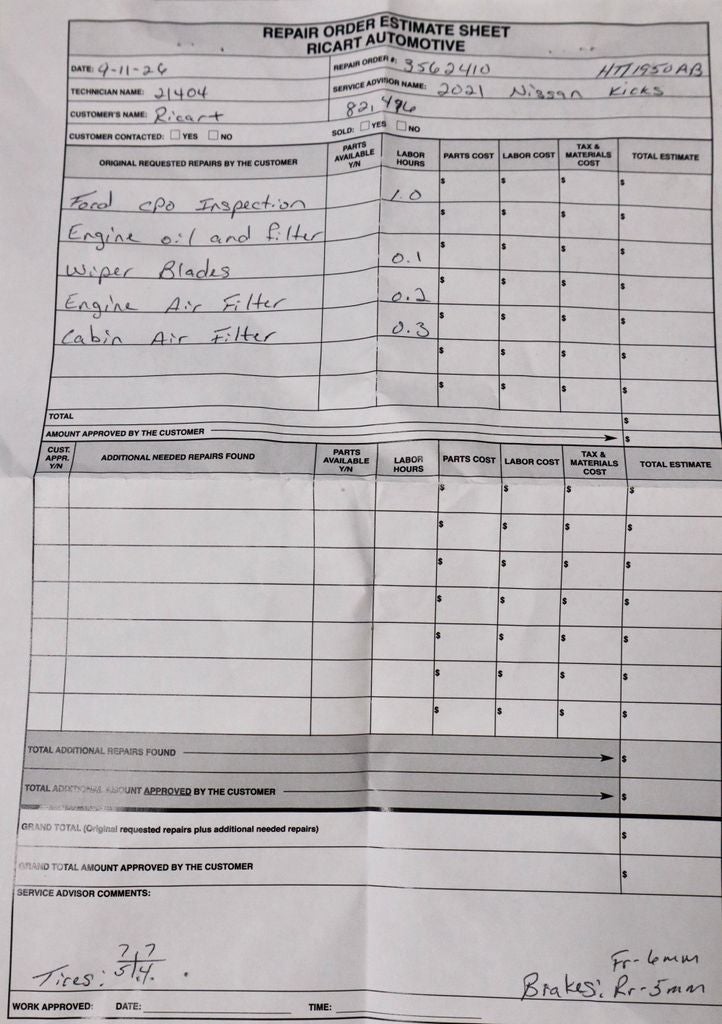 REPAIR ORDER ESTIMATE SHEET
RICART AUTOMOTIVE
DATE: 9-11-26 REPAIR ORDER #: 3562410 HT1950AB
TECHNICIAN NAME: 21404 SERVICE ADVISOR NAME: 2021 Nissan Kicks
CUSTOMER'S NAME: Ricart 82,496
CUSTOMER CONTACTED: YES NO SOLD: YES NO
ORIGINAL REQUESTED REPAIRS BY THE CUSTOMER PARTS AVAILABLE Y/N LABOR HOURS PARTS COST LABOR COST TAX & MATERIALS COST TOTAL ESTIMATE
Ford CPO Inspection 1.0 $ $ $ $
Engine oil and filter $ $ $ $
Wiper Blades 0.1 $ $ $ $
Engine Air Filter 0.2 $ $ $ $
Cabin Air Filter 0.3 $ $ $ $
$ $ $ $
$ $ $ $
TOTAL $
AMOUNT APPROVED BY THE CUSTOMER $
CUST. APPR. Y/N ADDITIONAL NEEDED REPAIRS FOUND PARTS AVAILABLE Y/N LABOR HOURS PARTS COST LABOR COST TAX & MATERIALS COST TOTAL ESTIMATE
$ $ $ $
$ $ $ $
$ $ $ $
$ $ $ $
$ $ $ $
$ $ $ $
$ $ $ $
TOTAL ADDITIONAL REPAIRS FOUND $
TOTAL ADDITIONAL AMOUNT APPROVED BY THE CUSTOMER $
GRAND TOTAL (Original requested repairs plus additional needed repairs) $
GRAND TOTAL AMOUNT APPROVED BY THE CUSTOMER $
SERVICE ADVISOR COMMENTS:
7 7 Fr-6mm
Tires: 5 4 Brakes: Rr-5mm
WORK APPROVED: DATE: TIME: